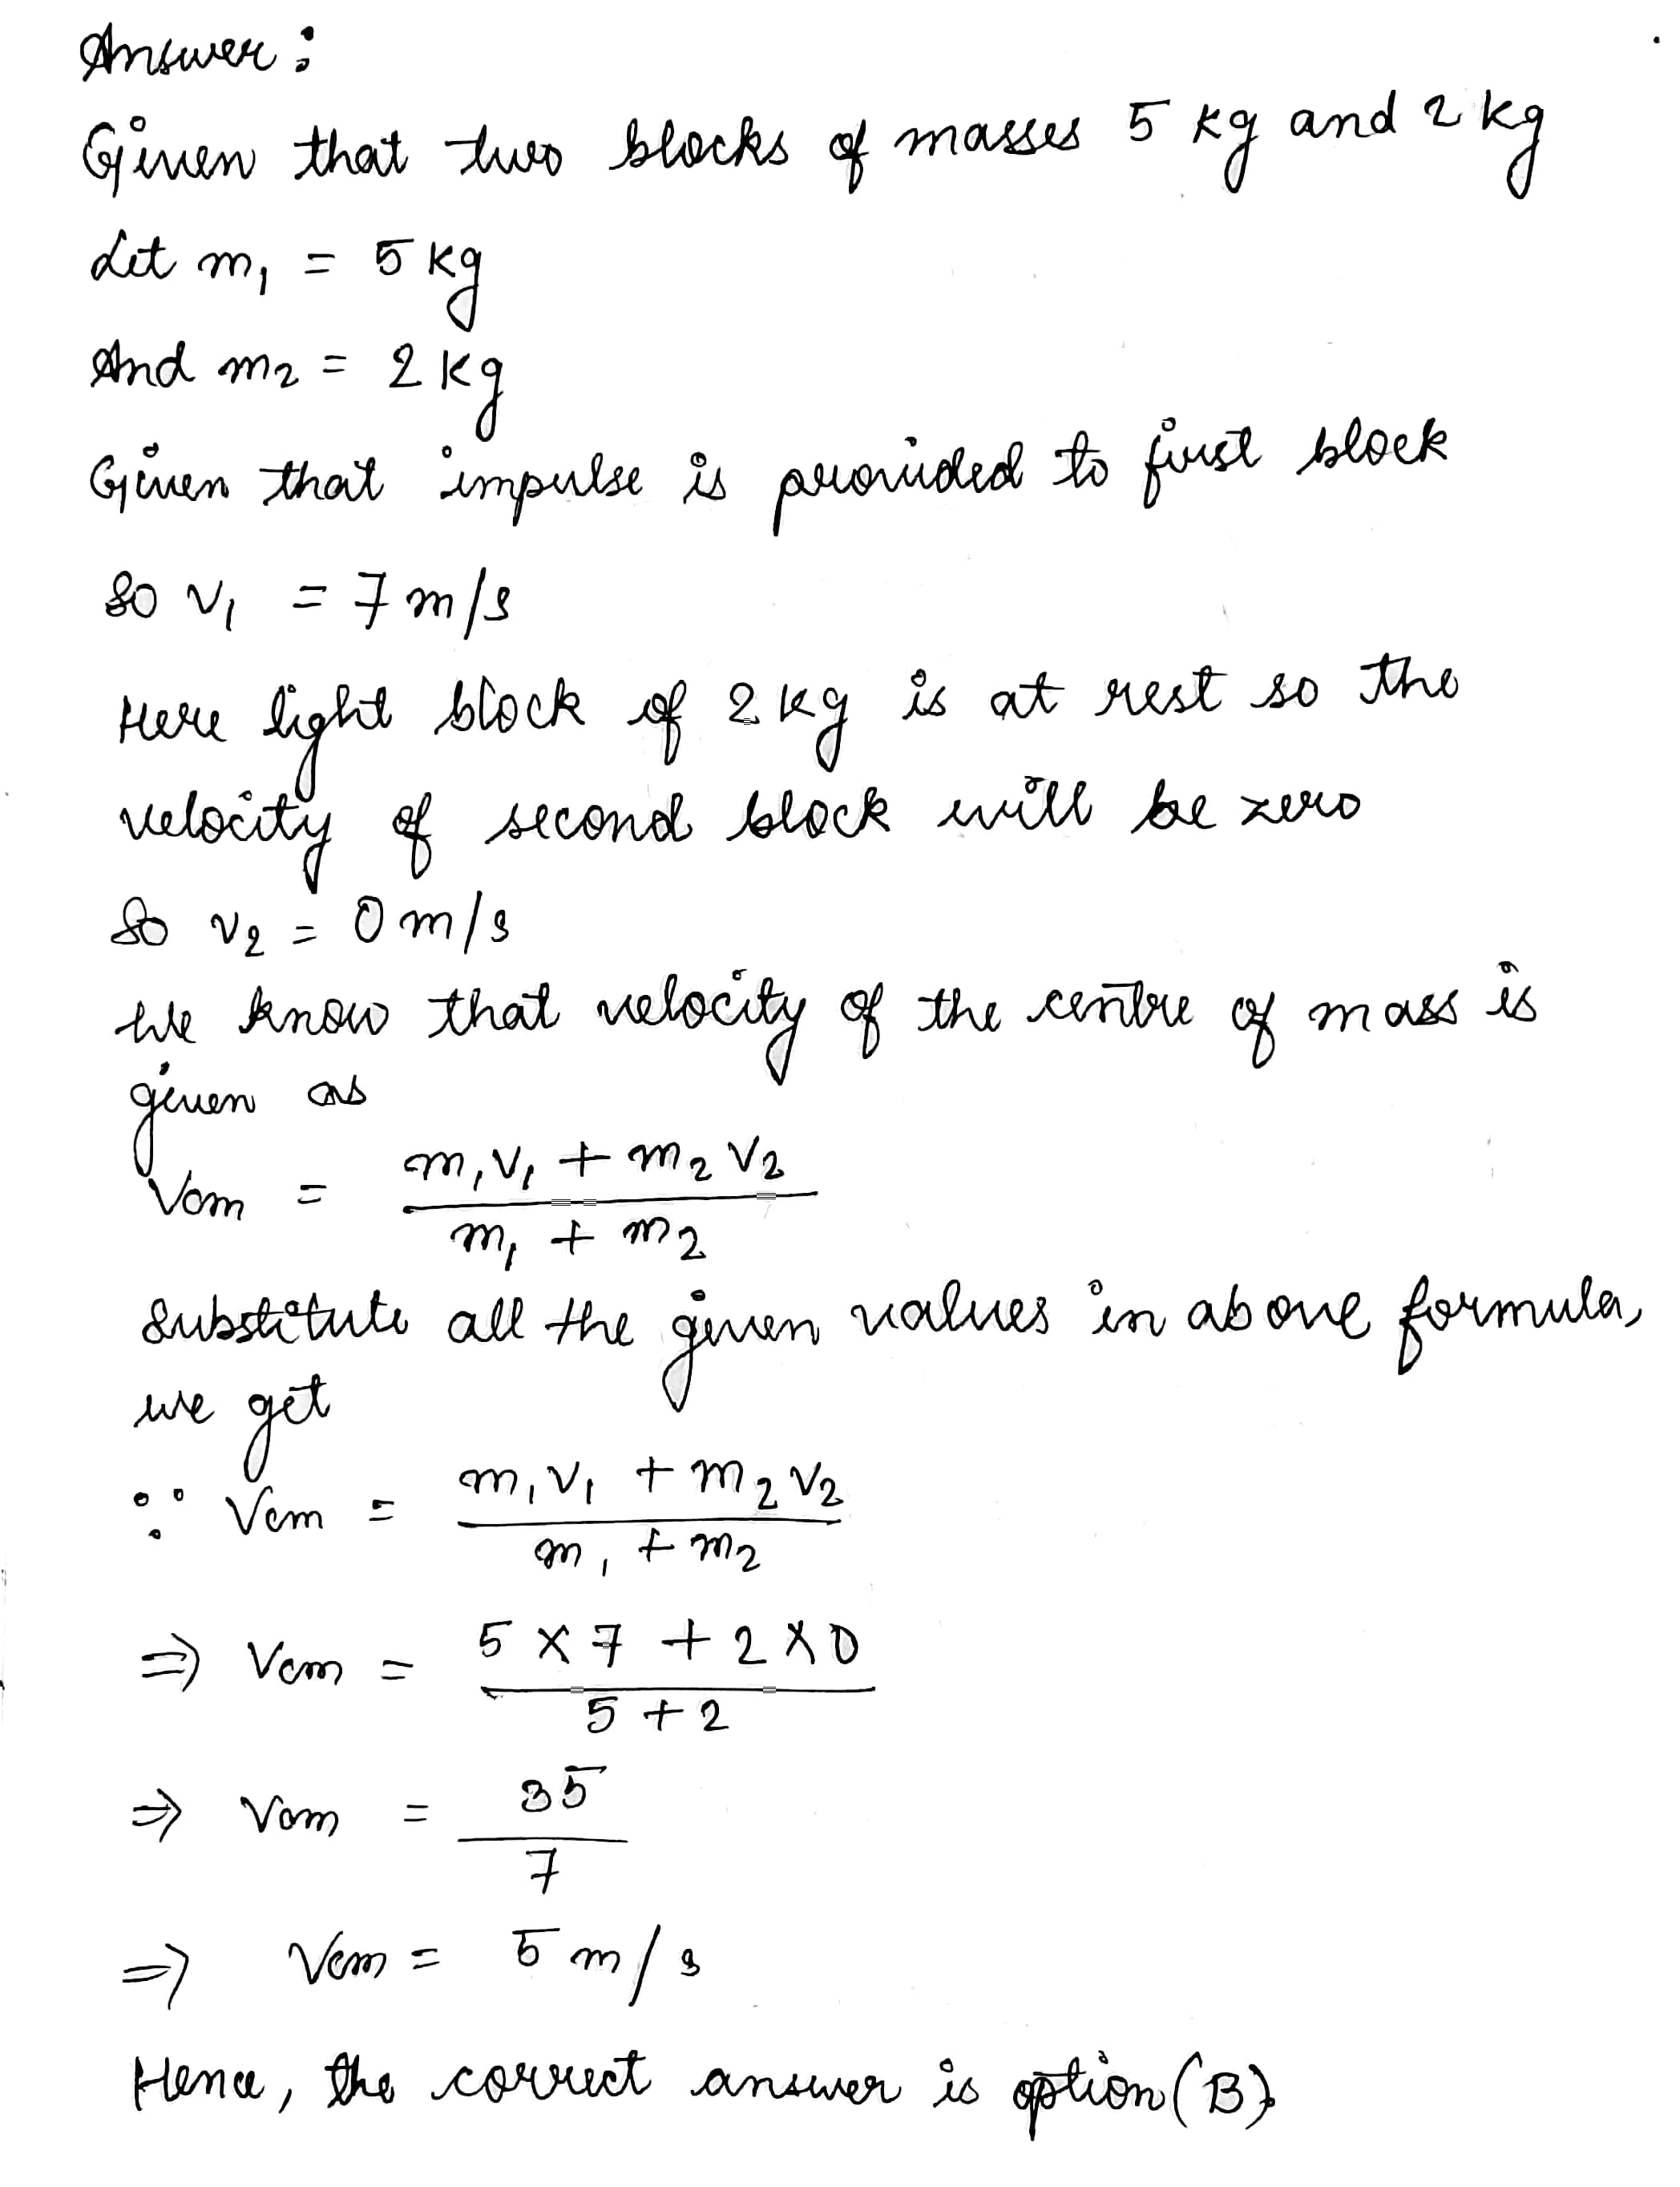 Answer :
Given that two blocks of masses 5 kg and 2 kg
Let m₁ = 5 kg
And m₂ = 2 kg
Given that impulse is provided to first block
So v₁ = 7 m/s
Here light block of 2 kg is at rest so the
velocity of second block will be zero
So v₂ = 0 m/s
We know that velocity of the centre of mass is
given as
Vcm = m₁v₁ + m₂v₂ / m₁ + m₂
Substitute all the given values in above formula,
we get
∵ Vcm = m₁v₁ + m₂v₂ / m₁ + m₂
⇒ Vcm = 5 × 7 + 2 × 0 / 5 + 2
⇒ Vcm = 35 / 7
⇒ Vcm = 5 m/s
Hence, the correct answer is option (B).